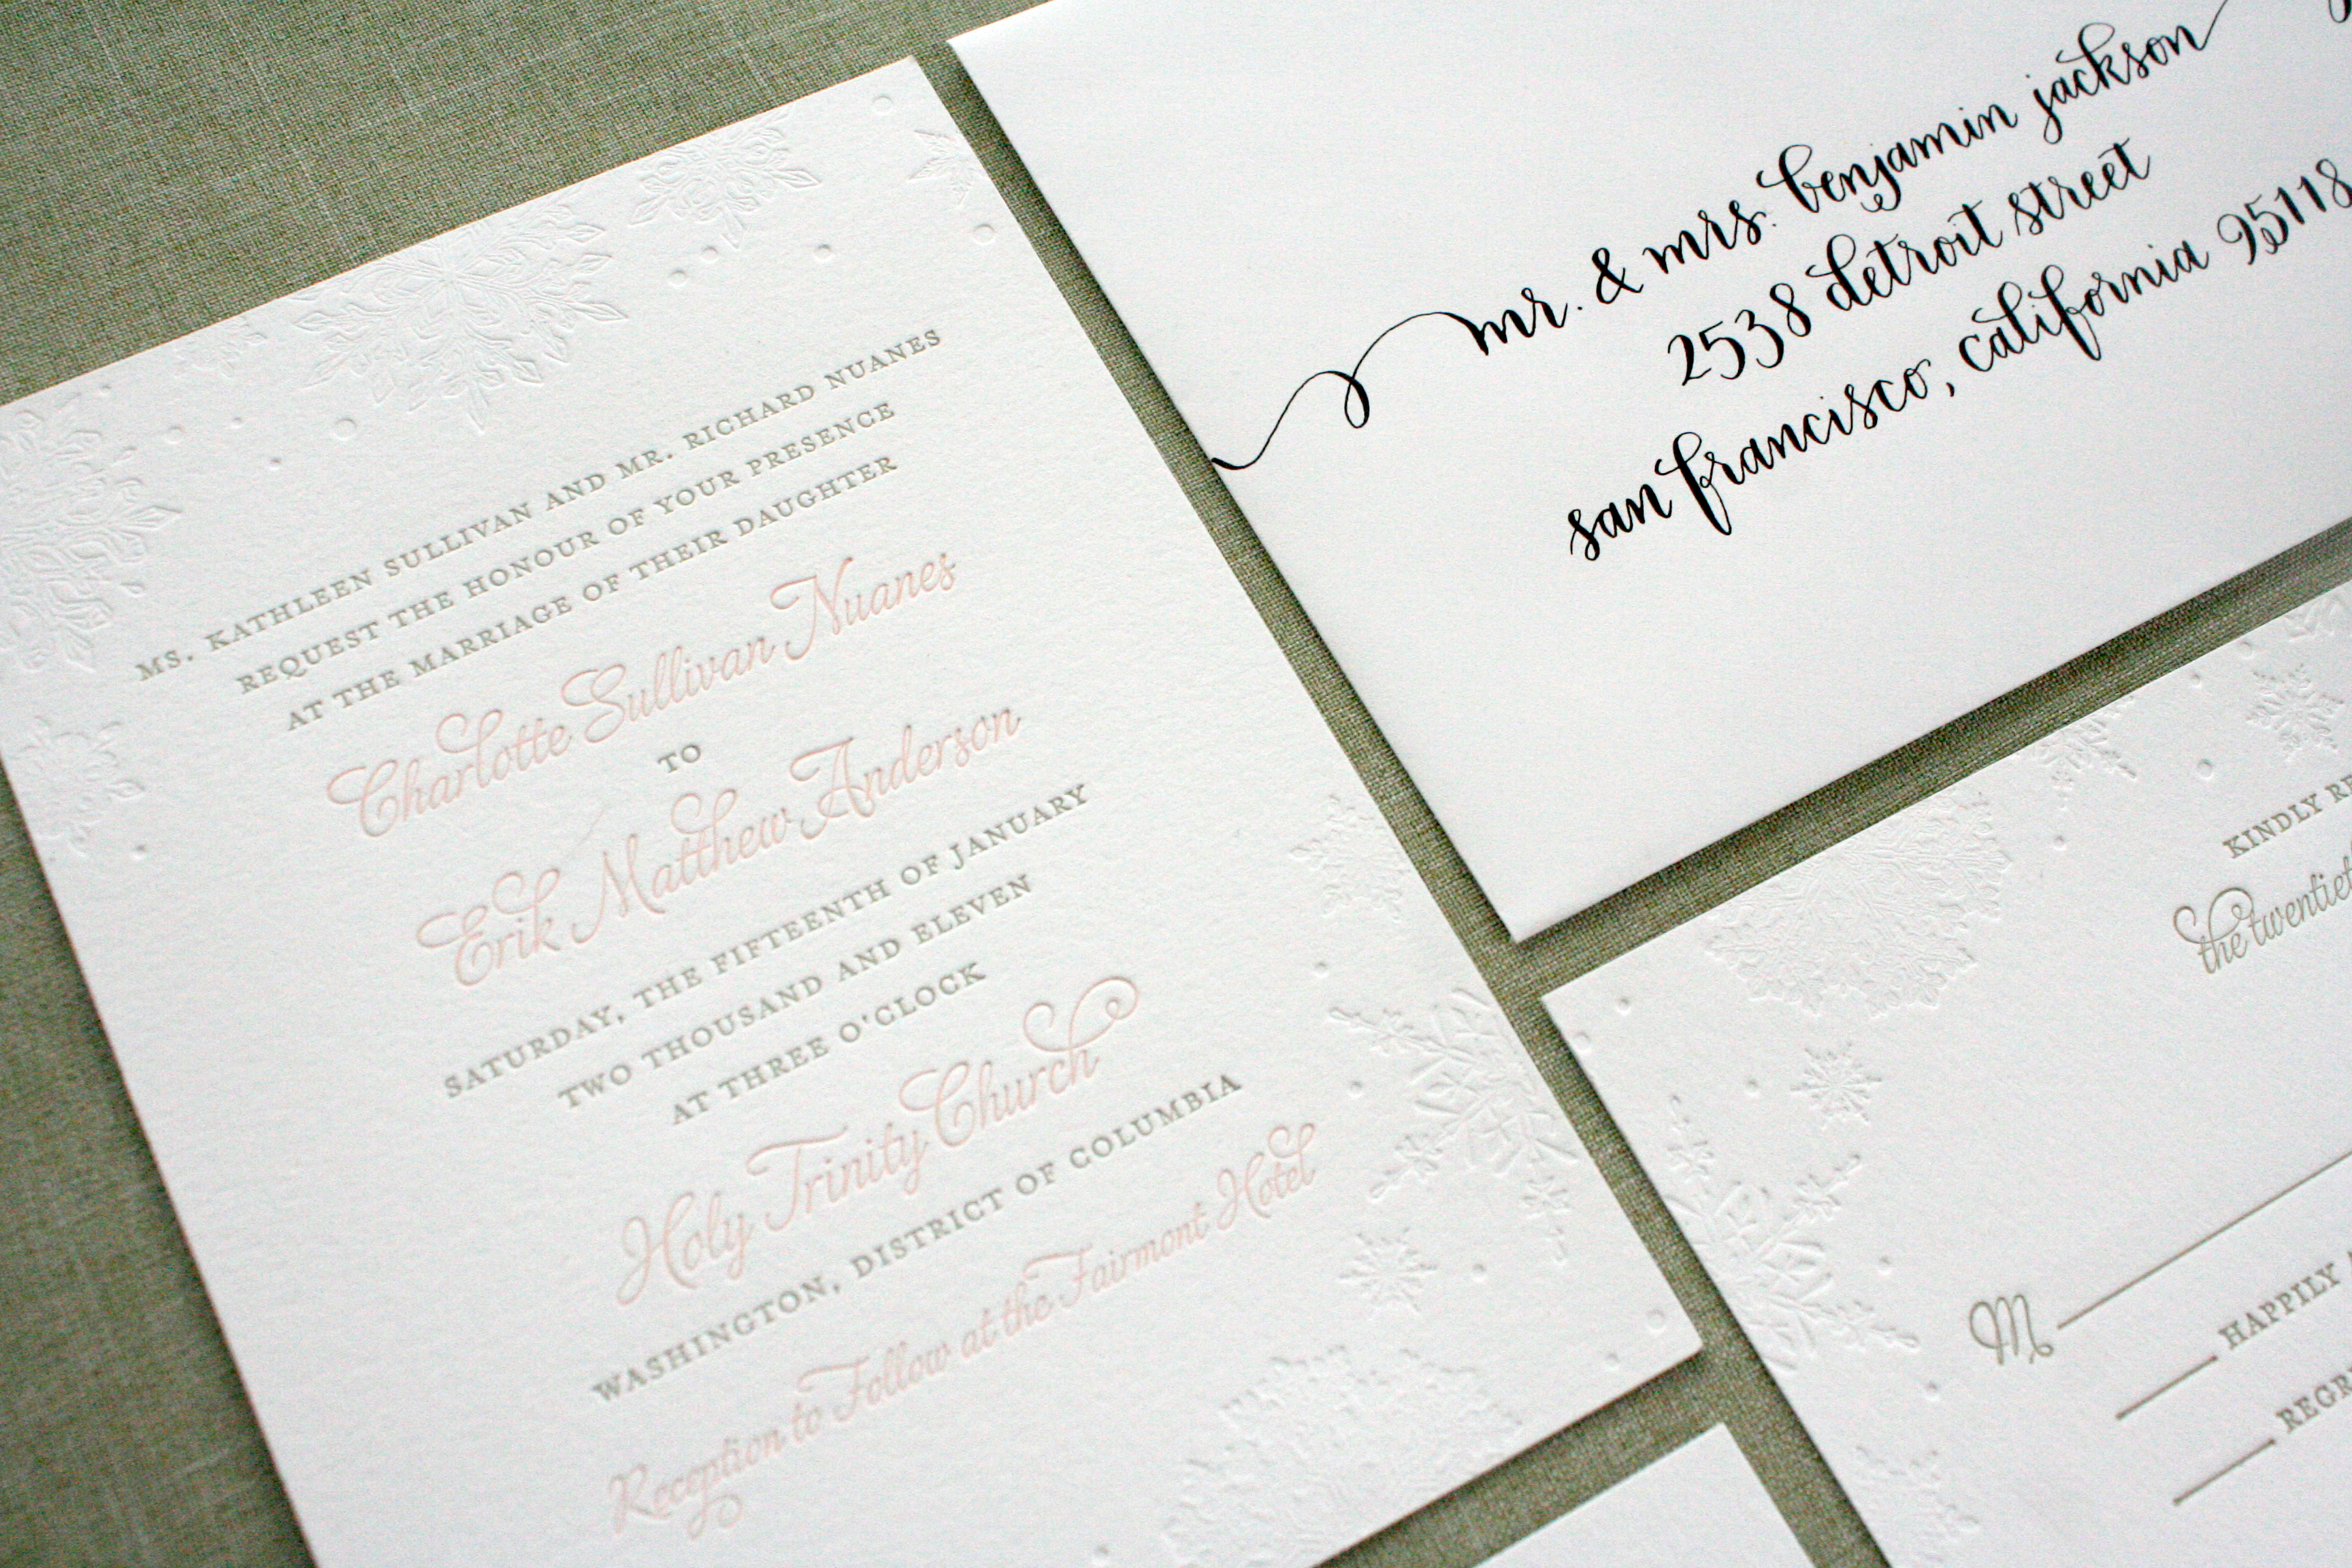 MS. KATHLEEN SULLIVAN AND MR. RICHARD NUANES
REQUEST THE HONOUR OF YOUR PRESENCE
AT THE MARRIAGE OF THEIR DAUGHTER
Charlotte Sullivan Nuanes
TO
Erik Matthew Anderson
SATURDAY, THE FIFTEENTH OF JANUARY
TWO THOUSAND AND ELEVEN
AT THREE O'CLOCK
Holy Trinity Church
WASHINGTON, DISTRICT OF COLUMBIA
Reception to Follow at the Fairmont Hotel
mr. & mrs. benjamin jackson
2538 detroit street
san francisco, california 95118
KINDLY
the
M
HAPPILY